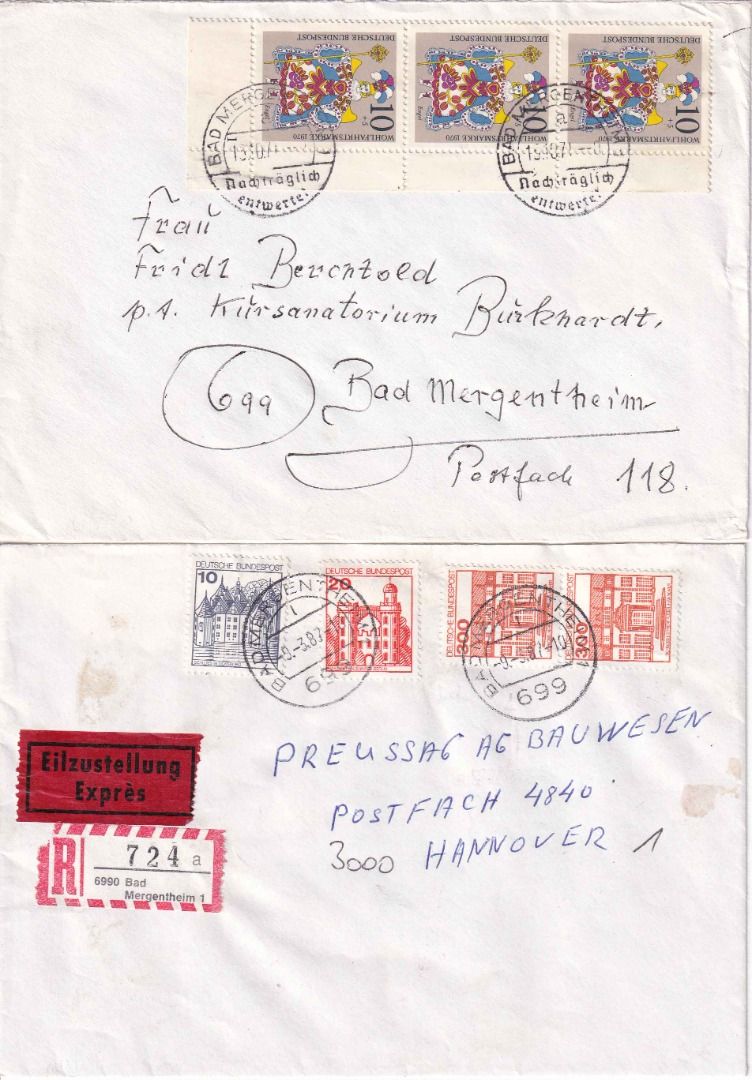 DEUTSCHE BUNDESPOST
10
+5
Engel
WOHLFAHRTSMARKE 1970
DEUTSCHE BUNDESPOST
10
+5
WOHLFAHRTSMARKE 1970
DEUTSCHE BUNDESPOST
10
+5
WOHLFAHRTSMARKE 1970
BAD MERGENTHEIM
Nachträglich
entwertet
BAD MERGENTHEIM
Nachträglich
entwertet
Frau
Fridl Berchtold
p.A. Kursanatorium Burkhardt,
699 Bad Mergentheim
Postfach 118.
DEUTSCHE BUNDESPOST
10
DEUTSCHE BUNDESPOST
20
DEUTSCHE BUNDESPOST
300
DEUTSCHE BUNDESPOST
300
BAD MERGENTHEIM 1
699
BAD MERGENTHEIM 1
699
Eilzustellung
Exprès
R
724 a
6990 Bad
Mergentheim 1
PREUSSAG AG BAUWESEN
POSTFACH 4840
3000 HANNOVER 1